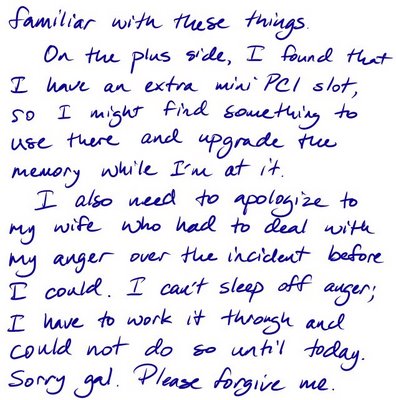 familiar with these things.
On the plus side, I found that
I have an extra mini PCI slot,
so I might find something to
use there and upgrade the
memory while I'm at it.
I also need to apologize to
my wife who had to deal with
my anger over the incident before
I could. I can't sleep off anger;
I have to work it through and
could not do so until today.
Sorry gal. Please forgive me.